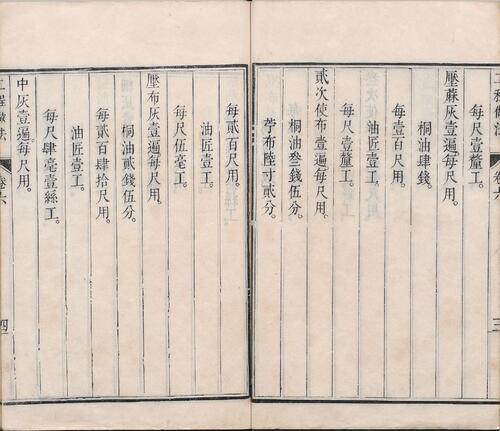 每尺壹釐工。
壓蔴灰壹遍每尺用。
桐油肆錢。
每壹百尺用。
油匠壹工。
每尺壹釐工。
貳次使布壹遍每尺用。
桐油叁錢伍分。
苧布陸寸貳分。
三
每貳百尺用。
油匠壹工。
每尺伍毫工。
壓布灰壹遍每尺用。
桐油貳錢伍分。
每貳百肆拾尺用。
油匠壹工。
每尺肆毫壹絲工。
中灰壹遍每尺用。
工程做法
卷六
四